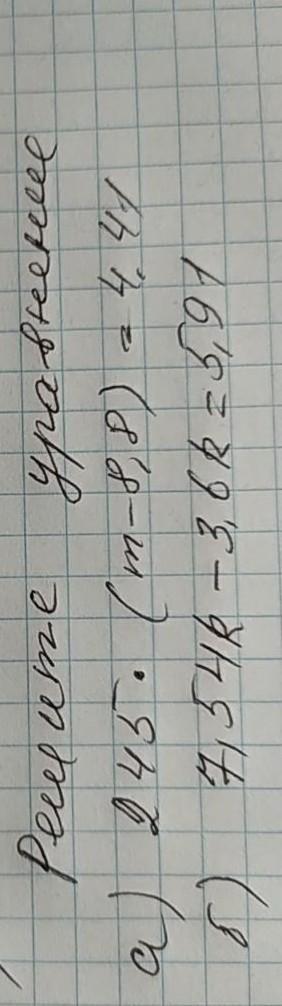 Решите уравнение
а) 245 · (m-8,8) = 4,41
б) 7,54k - 3,6k = 5,91